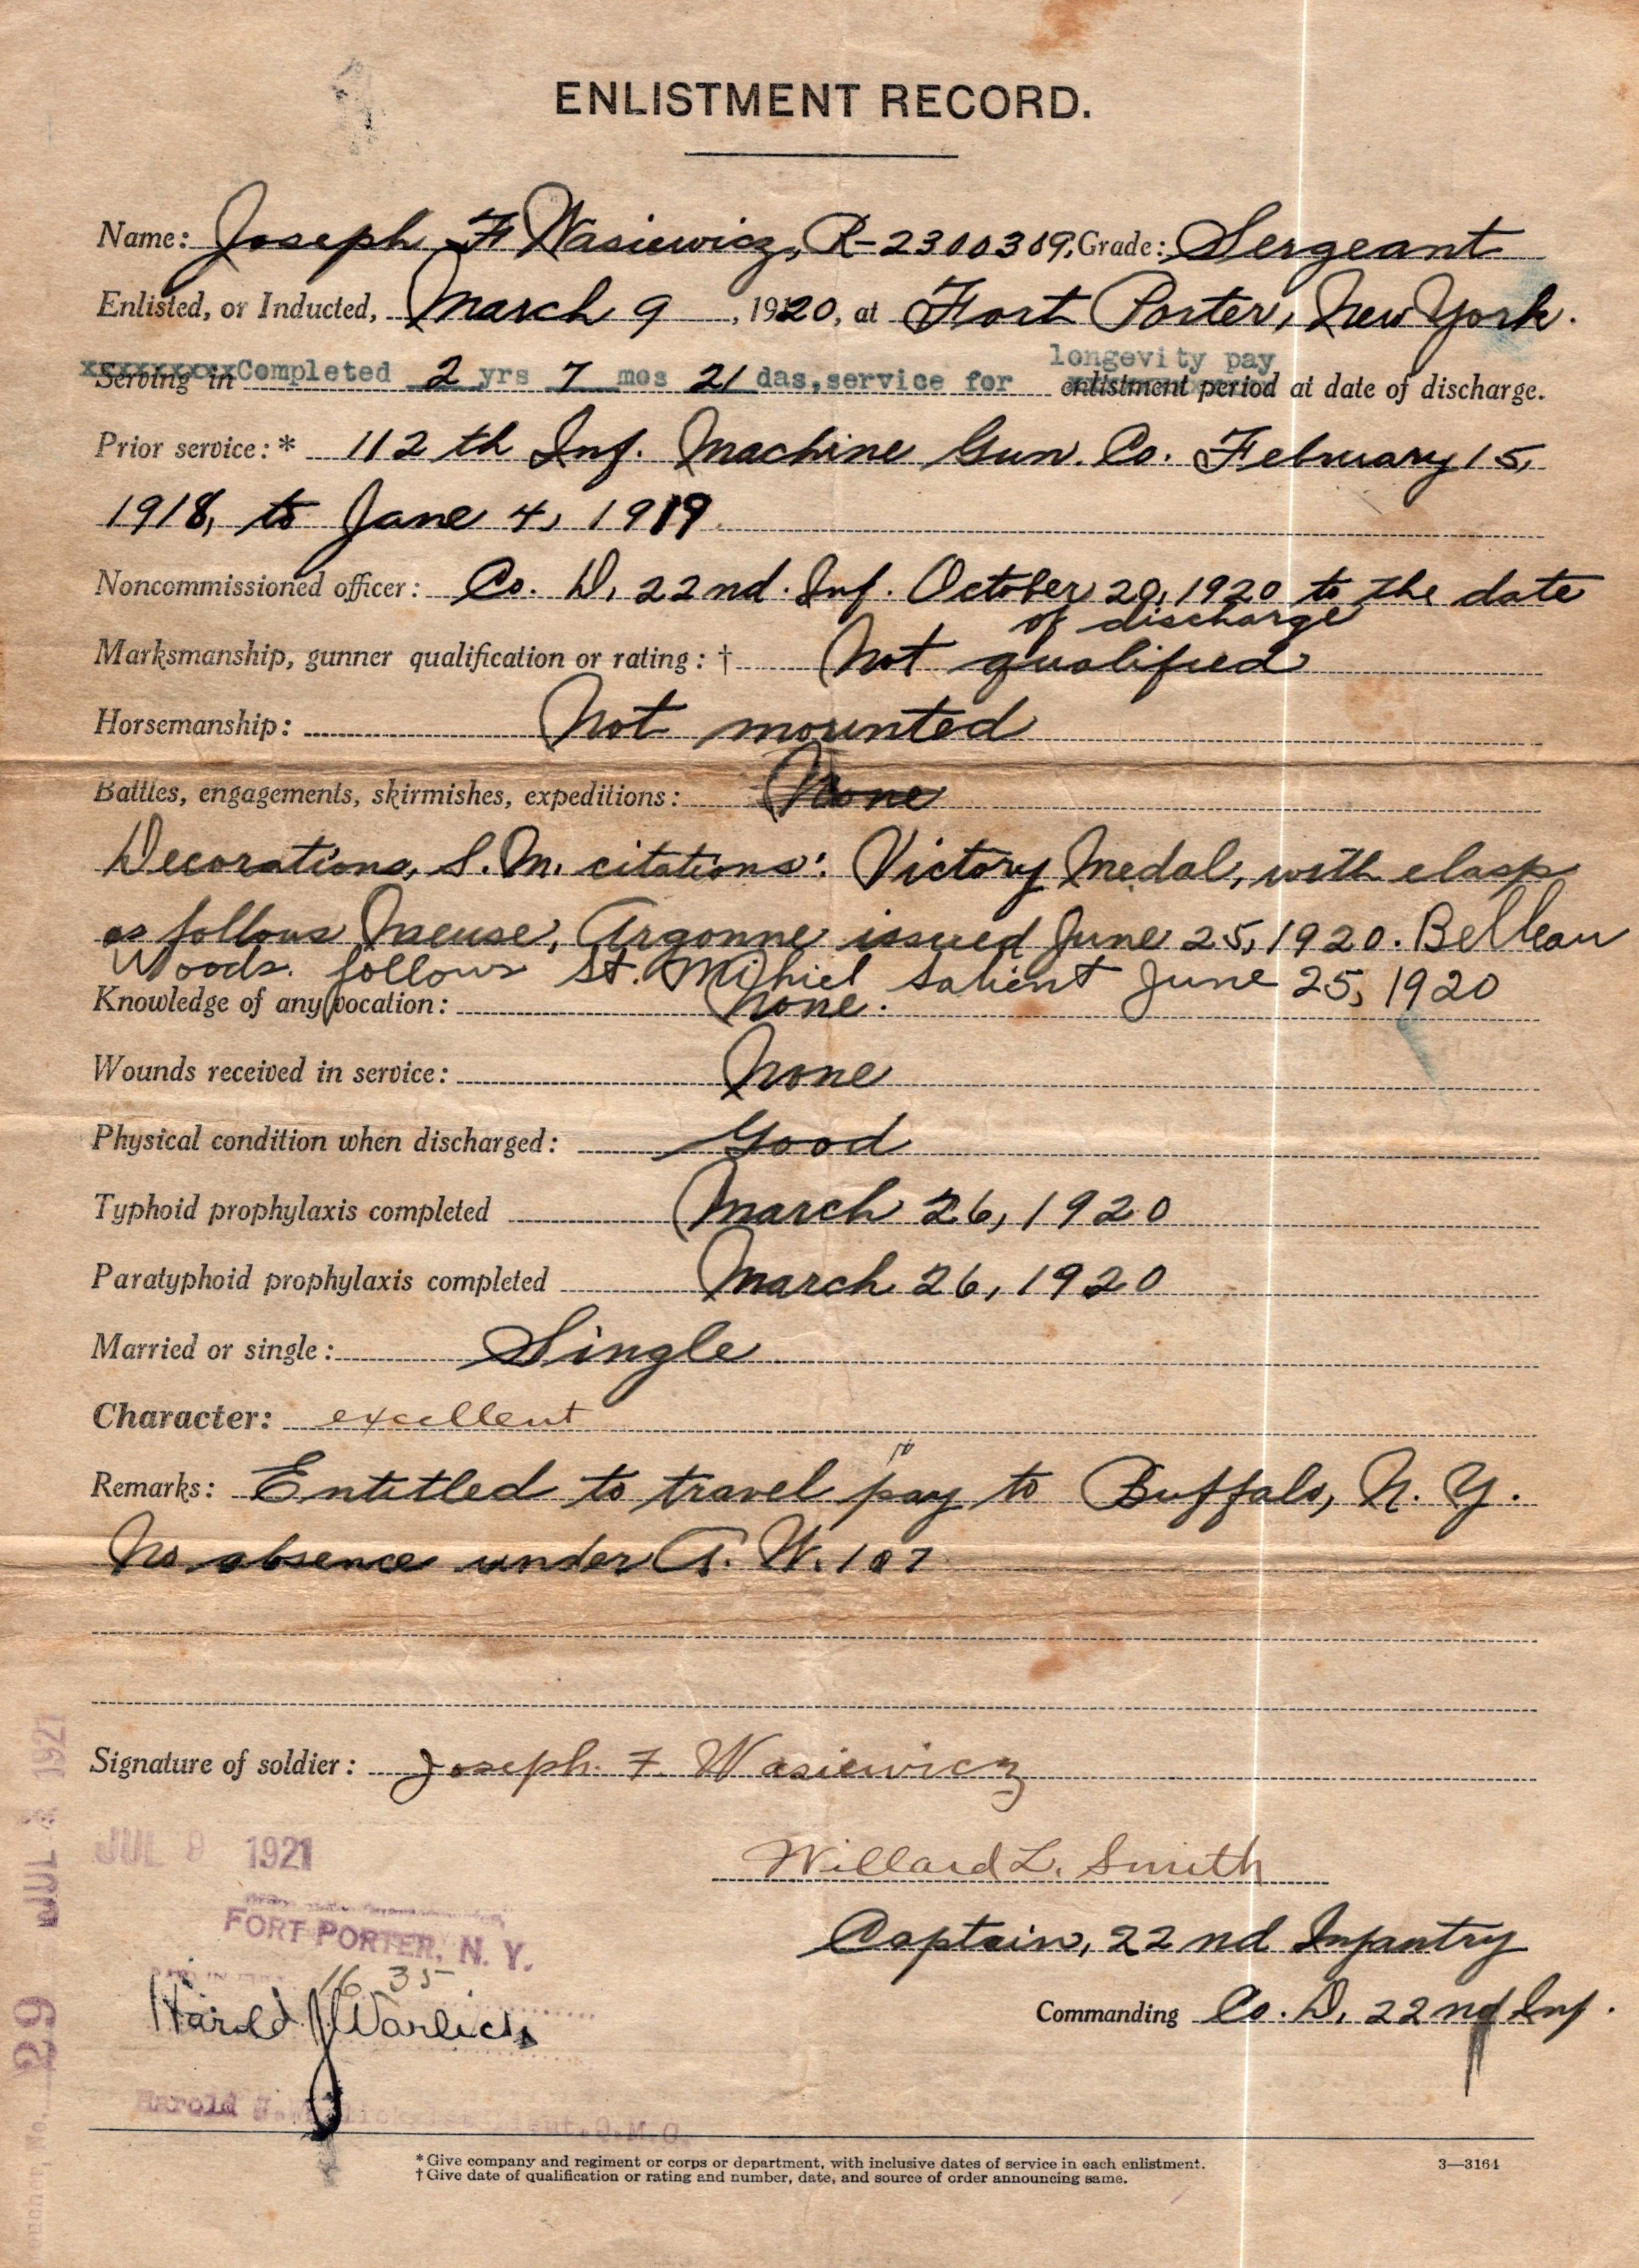 ENLISTMENT RECORD.
Name: Joseph F Wasiewicz, R-2300309, Grade: Sergeant
Enlisted, or Inducted, March 9, 1920, at Fort Porter, New York.
longevity pay
xxxxxxxxx Serving in Completed 2 yrs 7 mos 21 das, service for enlistment period at date of discharge.
Prior service:* 112th Inf. Machine Gun. Co. February 15,
1918, to Jane 4, 1919
Noncommissioned officer: Co. D, 22nd. Inf. October 20, 1920 to the date
of discharge
Marksmanship, gunner qualification or rating:† Not qualified
Horsemanship: Not mounted
Battles, engagements, skirmishes, expeditions: None
Decorations, S.M. citations: Victory Medal, with clasp
as follows Meuse, Argonne issued June 25, 1920. Belleau
Woods. follows St. Mihiel Salient June 25, 1920
Knowledge of any vocation: None.
Wounds received in service: None
Physical condition when discharged: Good
Typhoid prophylaxis completed March 26, 1920
Paratyphoid prophylaxis completed March 26, 1920
Married or single: Single
Character: excellent
Remarks: Entitled to travel pay to Buffalo, N. Y.
No absence under A. W. 107
Signature of soldier: Joseph. F. Wasiewicz
JUL 1921
JUL 9 1921
Willard L. Smith
FORT PORTER, N. Y.
Captain, 22nd Infantry
16 35
Harold J Warlick
Commanding Co. D, 22nd Inf.
29
Harold Lieut. Q.M.C.
*Give company and regiment or corps or department, with inclusive dates of service in each enlistment.
†Give date of qualification or rating and number, date, and source of order announcing same.
3—3164